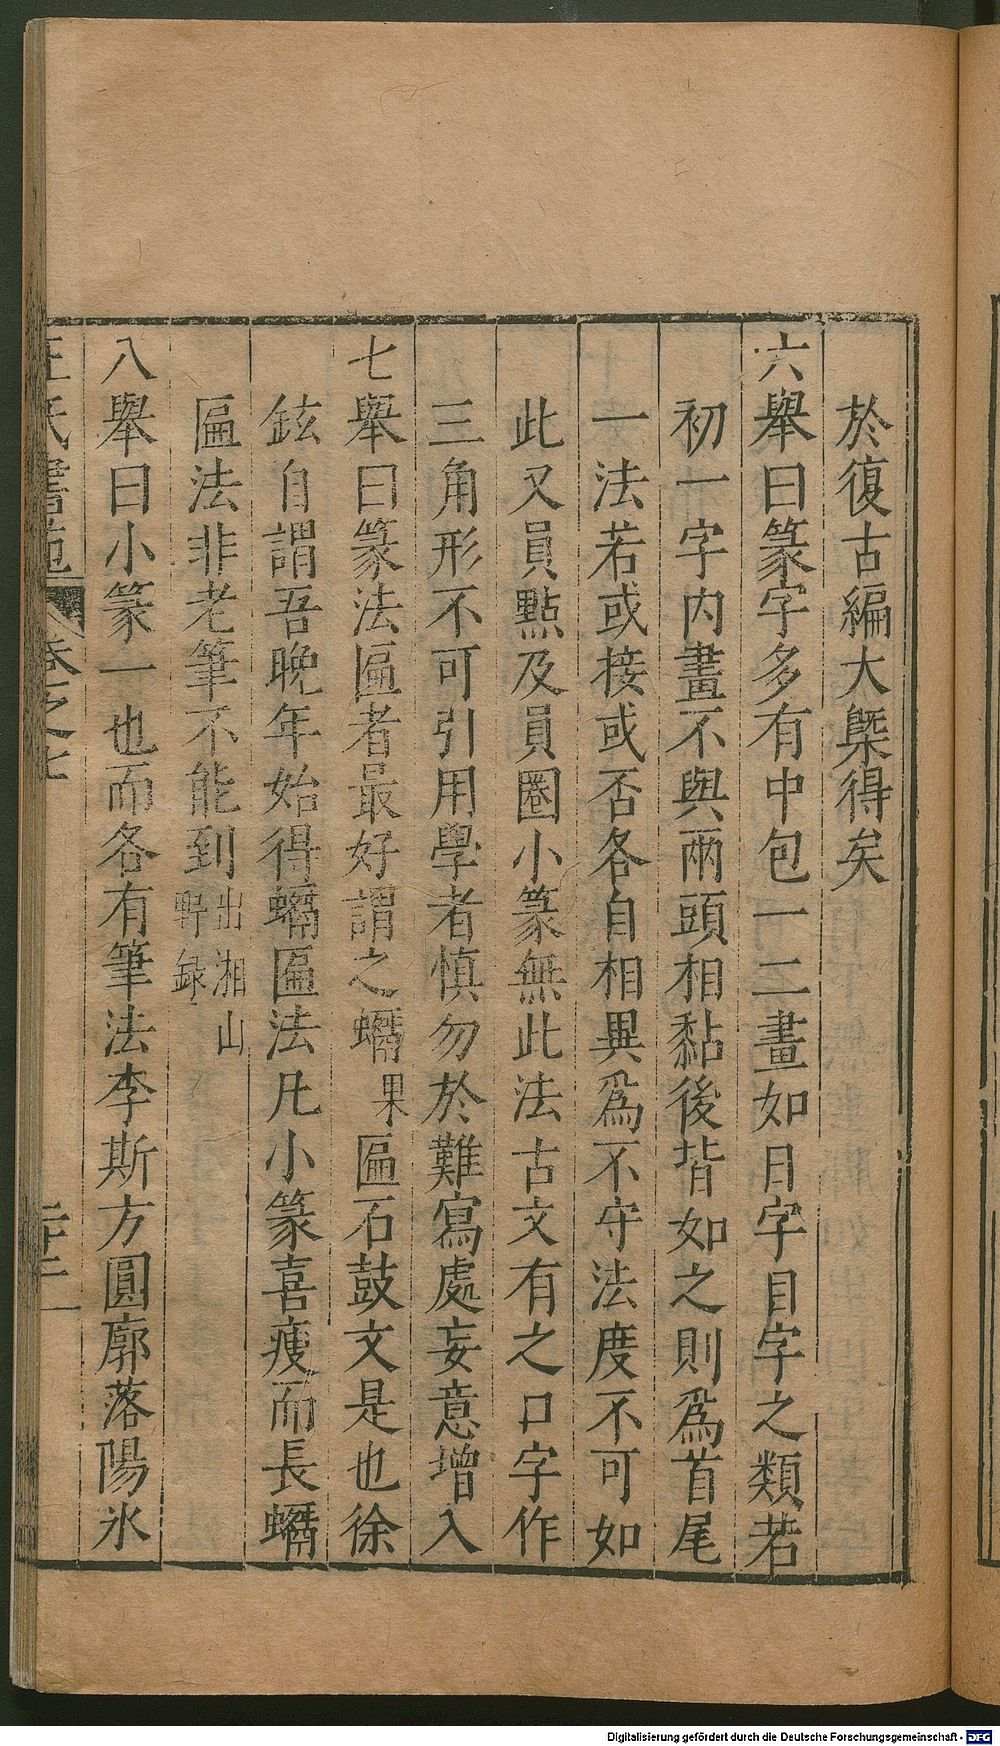 於復古編大槩得矣
六舉曰篆字多有中包一二畫如日字目字之類若
初一字内畫不與兩頭相黏後皆如之則爲首尾
一法若或接或否各自相異爲不守法度不可如
此又員㸃及員圈小篆無此法古文有之口字作
三角形不可引用學者慎勿於難寫處妄意增入
七舉曰篆法匾者最好謂之𧎯果匾石鼓文是也徐
鉉自謂吾晚年始得𧎯匾法凡小篆喜瘦而長𧎯
匾法非老筆不能到出湘山
野録
八舉曰小篆一也而各有筆法李斯方圓廓落陽氷
王氏書苑 卷之七
Digitalisierung gefördert durch die Deutsche Forschungsgemeinschaft - DFG